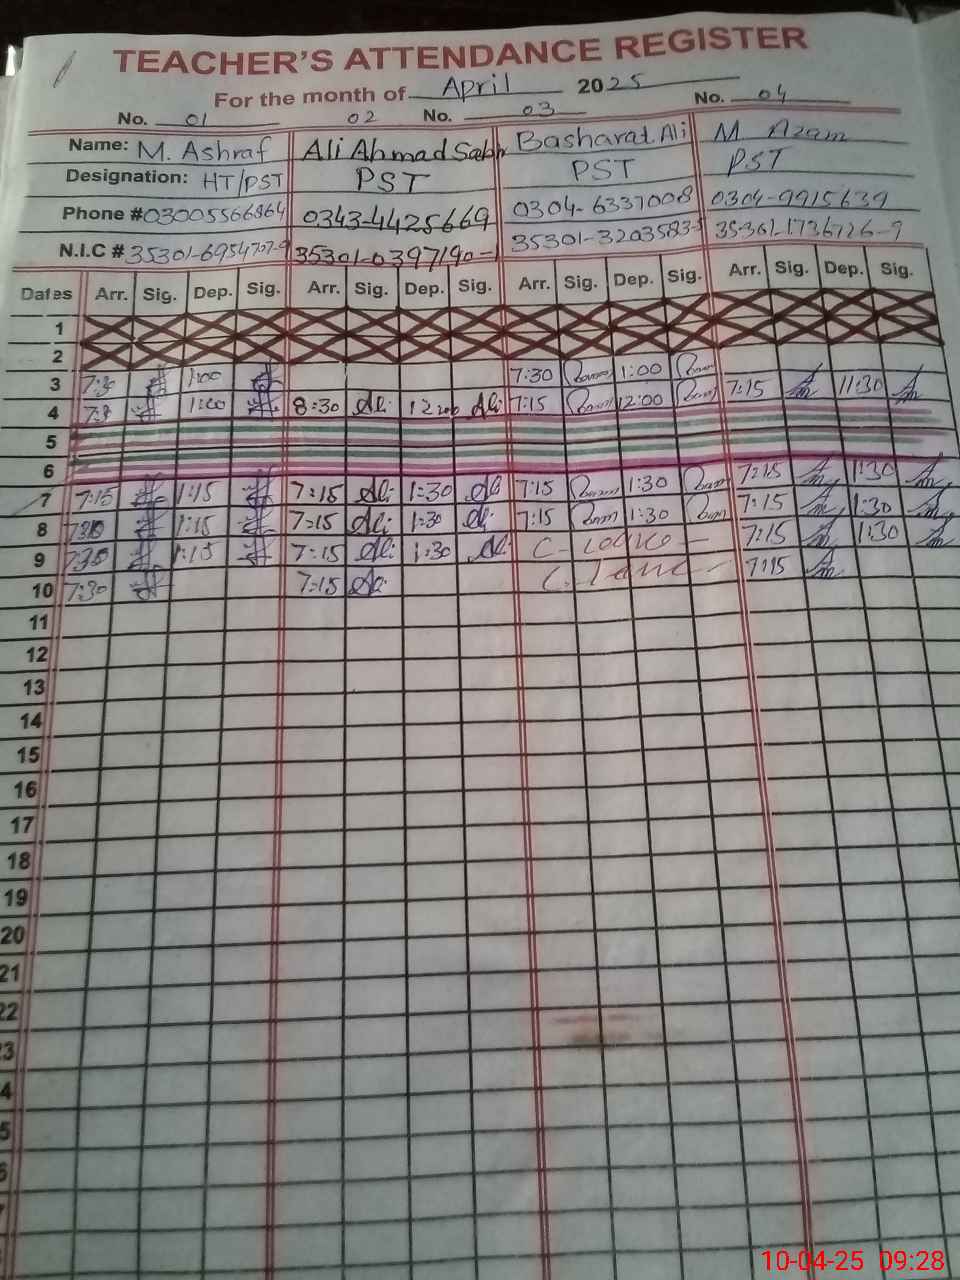 TEACHER'S ATTENDANCE REGISTER
For the month of April 2025
No. 01 02 No. 03 No. 04
Name: M. Ashraf Ali Ahmad Sabir Basharat Ali M Azam
Designation: HT/PST PST PST PST
Phone #03005566864 0343-4425669 0304-6337008 0304-9915639
N.I.C # 35301-6954707-9 35301-0397190-1 35301-3203583-5 35301-1736726-9
Dates Arr. Sig. Dep. Sig. Arr. Sig. Dep. Sig. Arr. Sig. Dep. Sig. Arr. Sig. Dep. Sig.
1
2
3 7:30 1:00 7:30 1:00
4 1:00 8:30 Ali 12:00 Ali 7:15 12:00 7:15 11:30
5
6
7 7:15 1:15 7:15 Ali 1:30 Ali 7:15 1:30 7:15 1:30
8 1:15 7:15 Ali 1:30 Ali 7:15 1:30 7:15 1:30
9 1:15 7:15 Ali 1:30 Ali C. Leave 7:15 1:30
10 7:30 7:15 Ali C. Leave 7:15
11
12
13
14
15
16
17
18
19
20
21
22
23
4
5
6
10-04-25 09:28